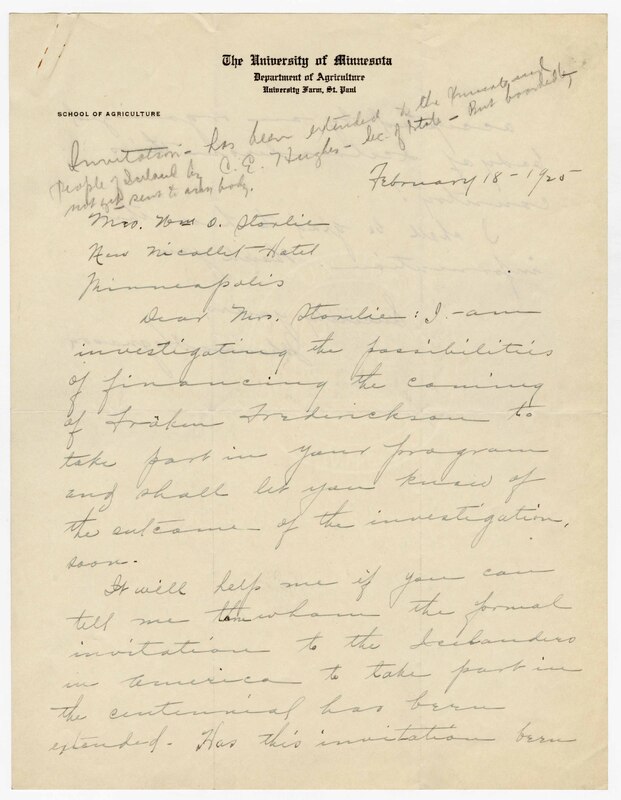 The University of Minnesota
Department of Agriculture
University Farm, St. Paul
SCHOOL OF AGRICULTURE
Invitation - has been extended to the
People of Iceland by C. E. Hughes - Sec. of State - But
not yet sent to anybody.
February 18 - 1925
Mrs. Wm O. Storlie
New Nicollet Hotel
Minneapolis
Dear Mrs. Storlie: I - am
investigating the possibilities
of financing the coming
of Fröken Frederickson to
take part in your program
and shall let you know of
the outcome of the investigation,
soon.
It will help me if you can
tell me whom the formal
invitation to the Icelanders
in America to take part in
the centennial has been
extended - Has this invitation been